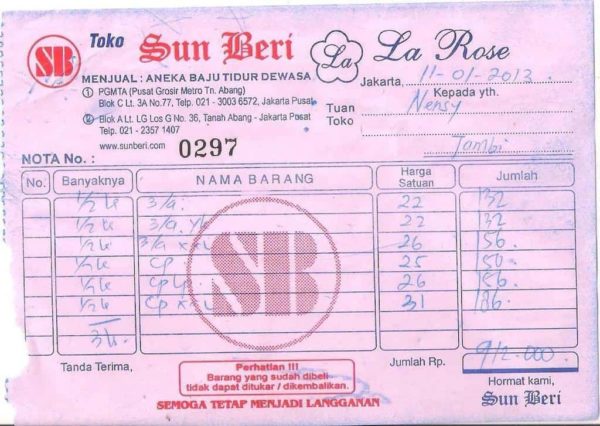 SB Toko Sun Beri La La Rose
MENJUAL : ANEKA BAJU TIDUR DEWASA
Jakarta, 11-01-2013
① PGMTA (Pusat Grosir Metro Tn. Abang)
Kepada yth.
Blok C Lt. 3A No.77, Telp. 021 - 3003 6572, Jakarta Pusat
Tuan Nensy
② Blok A Lt. LG Los G No. 36, Tanah Abang - Jakarta Pusat
Toko
Telp. 021 - 2357 1407
www.sunberi.com 0297
Jambi
NOTA No. :
No. Banyaknya NAMA BARANG Harga Satuan Jumlah
1/2 3/a. 22 132
1/2 3/a. 22 132
1/2 3/a 26 156
1/2 Cp 25 150
1/2 Cp 26 156
1/2 Cp 31 186
SB
Tanda Terima,
Perhatian !!!
Jumlah Rp. 912.000
Barang yang sudah dibeli
tidak dapat ditukar / dikembalikan.
Hormat kami,
SEMOGA TETAP MENJADI LANGGANAN
Sun Beri